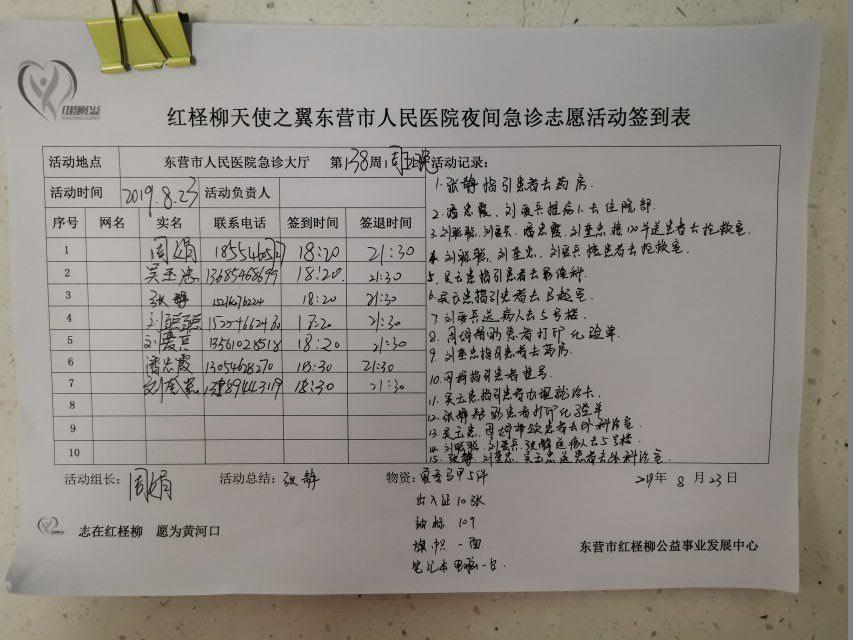 红柽柳公益
红柽柳天使之翼东营市人民医院夜间急诊志愿活动签到表
活动地点 东营市人民医院急诊大厅 第138周 活动记录:
活动时间 2019.8.23 活动负责人
序号 网名 实名 联系电话 签到时间 签退时间
1 周娟 18:20 21:30
2 吴玉忠 13685468699 18:20 21:30
3 张静 18:20 21:30
4 21:30
5 刘爱兵 13561028518 18:20 21:30
6 潘忠霞 13054628270 18:30 21:30
7 刘奎忠 18:30 21:30
8
9
10
1.张静指引患者去药房.
2.潘忠霞、刘爱兵推病人去住院部.
3. 刘爱兵、潘忠霞、刘奎忠 接120并送患者去抢救室.
4. 刘奎忠、刘爱兵 接患者去抢救室.
5.吴玉忠指引患者去影像科.
6.吴玉忠指引患者去
7.刘爱兵送病人去5号楼
8.周娟帮助患者打印化验单.
9.刘奎忠指引患者去药房.
10.周娟指引患者挂号
11.吴玉忠指引患者办理就诊卡
12.张静帮助患者打印化验单
13.吴玉忠、周娟带领患者去外科诊室.
14. 刘爱兵、张静送病人去5号楼
15.张静、刘奎忠、吴玉忠送患者去外科诊室.
活动组长: 周娟 活动总结: 张静 物资: 马甲5件 2019年 8月23日
出入证10张
胸标10个
旗帜一面
笔记本电脑一台.
志在红柽柳 愿为黄河口
东营市红柽柳公益事业发展中心